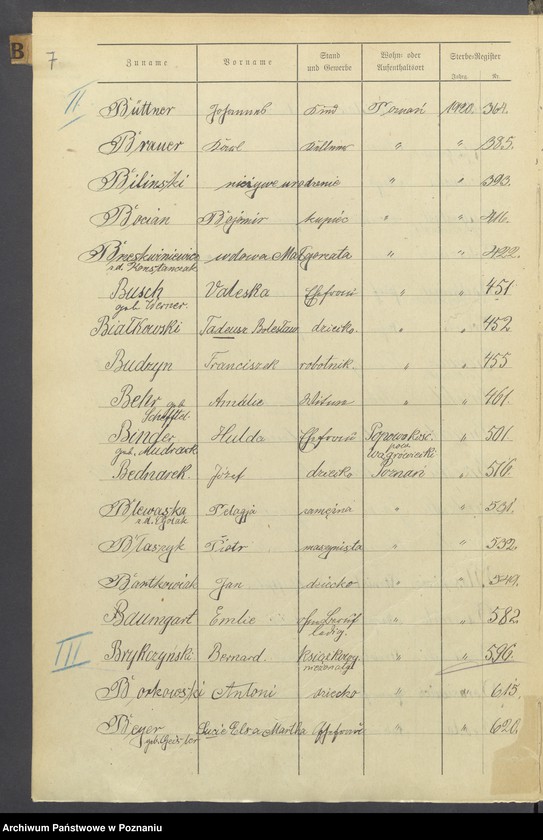 B
7
Zuname Vorname Stand und Gewerbe Wohn- oder Aufenthaltsort Sterbe-Register Jahrg. Nr.
II
Büttner Johannes Kind Poznań 1920. 364.
Brauer Karl Kellner " " 385.
Biliński nieżywe urodzenie " " 393.
Bocian Bojomir kupiec " " 416.
Brzeskwiniewicz wdowa Małgorzata " " 422.
z d. Konstanczak
Busch Valeska Ehefrau " " 451
geb. Werner.
Białkowski Tadeusz Bolesław dziecko. " " 452
Budzyn Franciszek robotnik. " " 455
Behr geb. Amalie Witwe " " 461.
Binder Hulda Ehefrau " 501.
geb. Mudrack pow. Wągrowiecki
Bednarek Józef dziecko Poznań " 516.
Pelagja zamężna " " 531.
Błaszyk Piotr maszynista " " 532.
Bartkowiak Jan dziecko " " 549.
Baumgart Emilie ohne Beruf " " 582
ledig.
III
Brykczyński Bernard. " " 596.
Borkowski Antoni dziecko " " 615.
Beyer Lucie Elsa Martha Ehefrau " " 620.
Archiwum Państwowe w Poznaniu